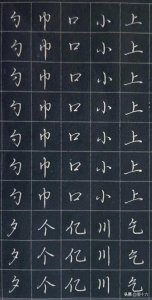 勺 巾 口 小 上
勺 巾 口 小 上
勺 巾 口 小 上
勺 巾 口 小 上
勺 巾 口 小 上
勺 巾 口 小 上
勺 巾 口 小 上
夕 个 亿 川 乞
夕 个 亿 川 乞
夕 个 亿 川 乞